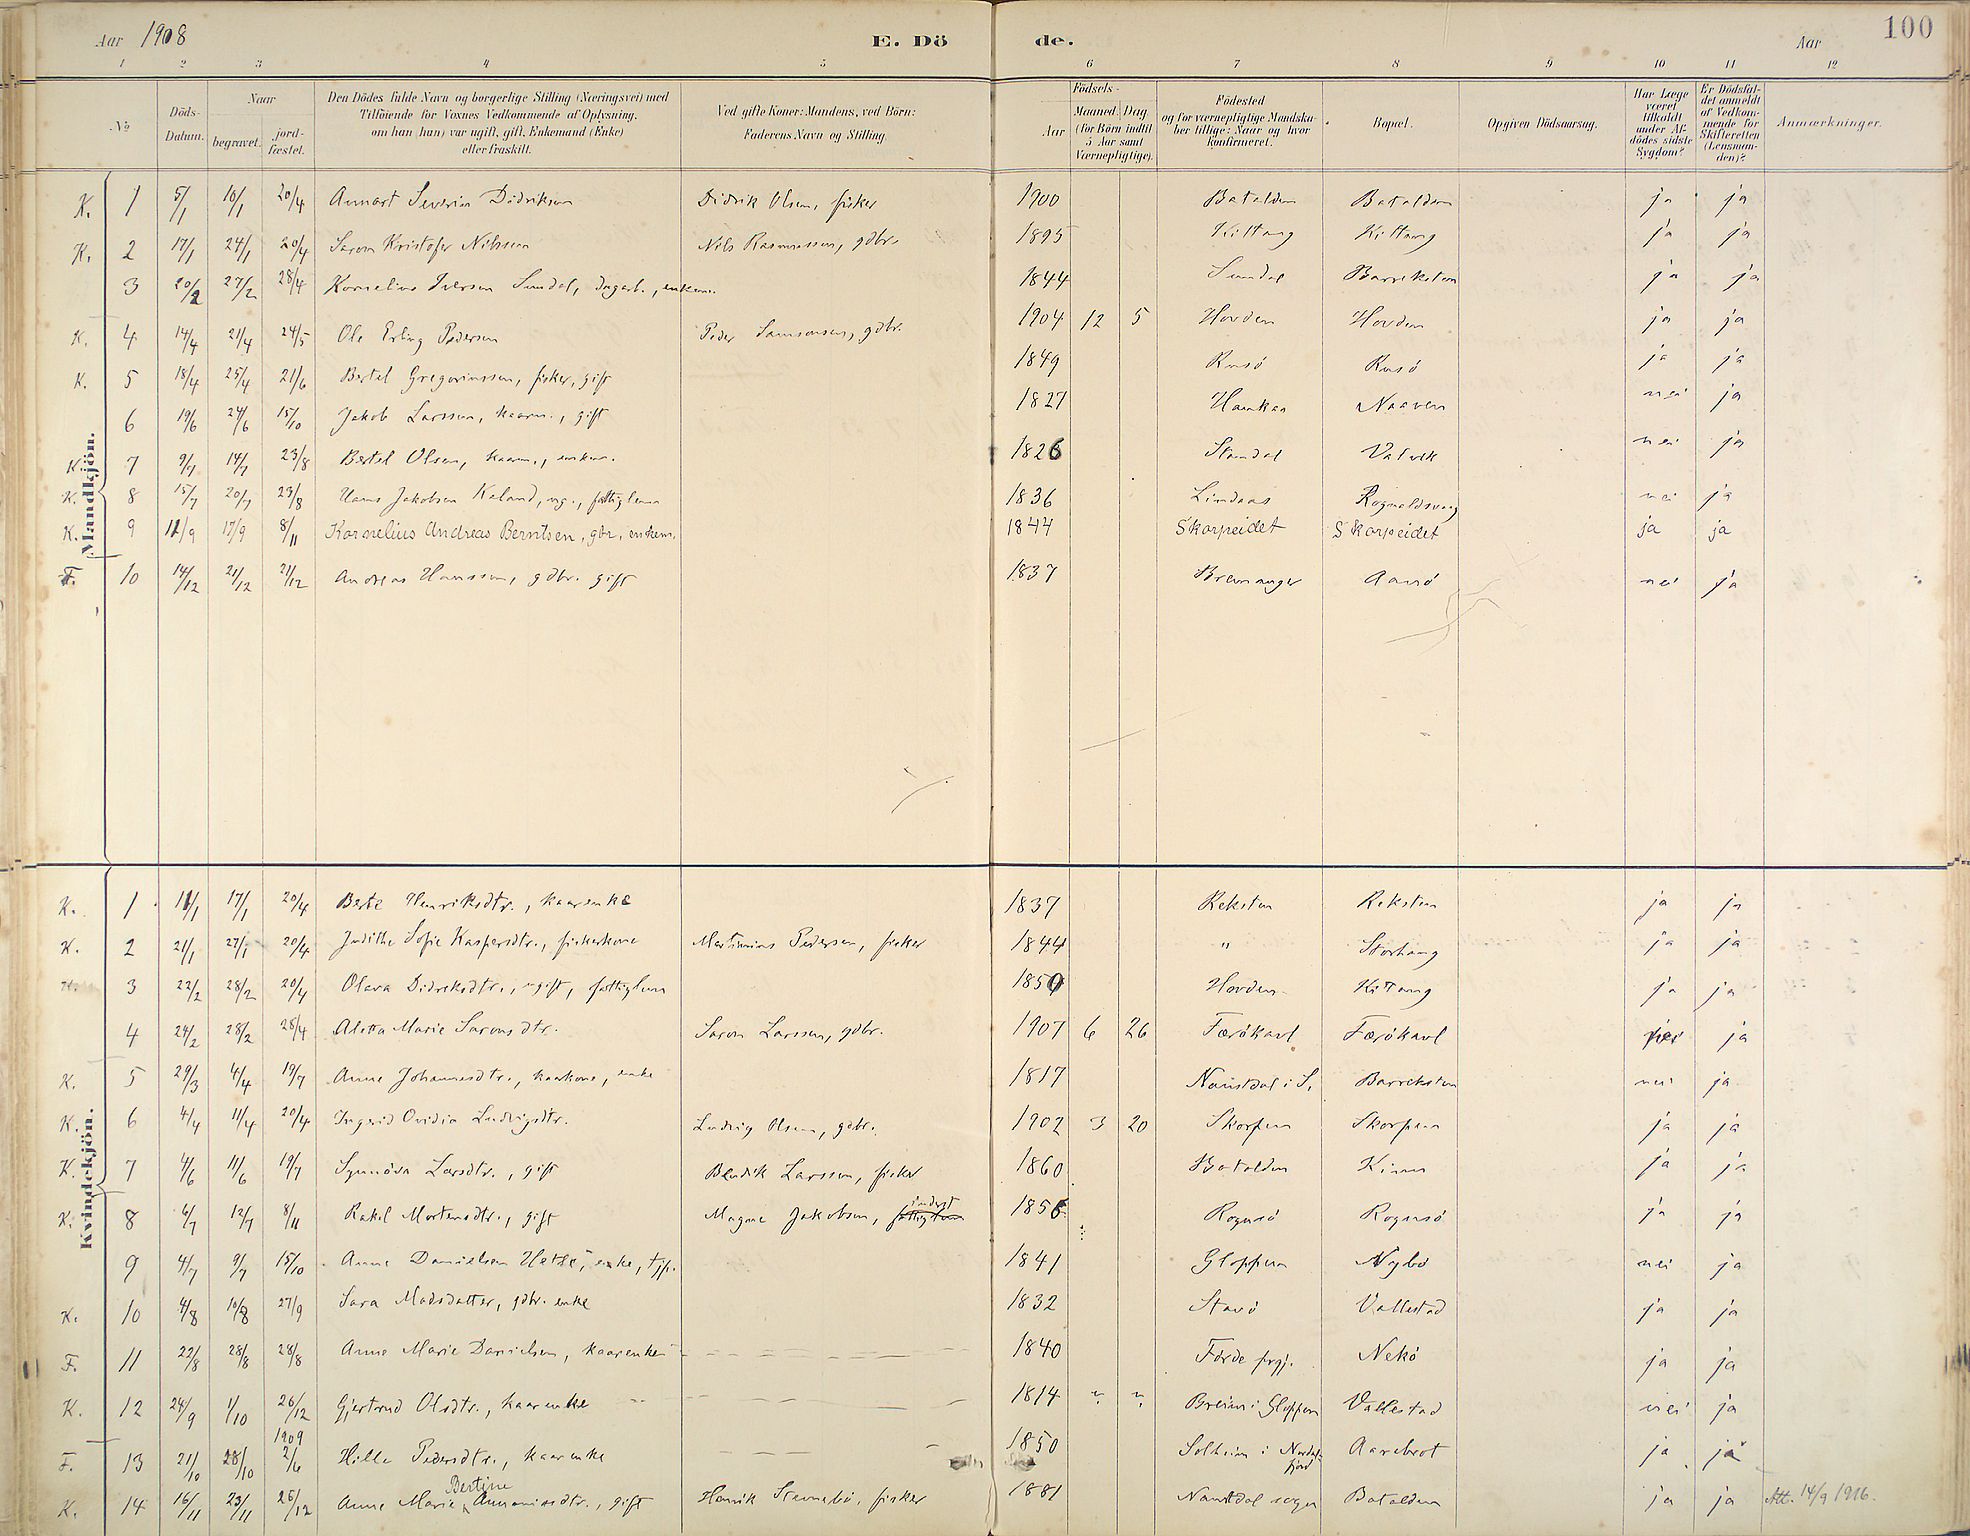 Aar 1908 E. Dö de. Aar 100
1 2 3 4 5 6 7 8 9 10 11 12
No Döds-Datum. Naar begravet. jord-fæstet. Den Dödes fulde Navn og borgerlige Stilling (Næringsvei) med Tilföiende for Voxnes Vedkommende af Oplysning, om han (hun) var ugift, gift, Enkemand (Enke) eller fraskilt. Ved gifte Koner: Mandens, ved Börn: Faderens Navn og Stilling. Födsels- Aar Maaned Dag (for Börn indtil 5 Aar samt Værnepligtige). Födested og for værnepligtige Mandska-ber tillige: Naar og hvor konfirmeret. Bopæl. Opgiven Dödsaarsag. Har Læge været tilkaldt under Af-dödes sidste Sygdom? Er Dödsfal-det anmeldt af Vedkom-mende for Skifteretten (Lensman-den)? Anmærkninger.
Mandkjön.
K. 1 5/1 16/1 20/4 Annart Severin Didriksen Didrik Olsen, fisker 1900 Batalden Batalden ja ja
K. 2 17/1 24/1 20/4 Saron Kristofer Nilssen Nils Rasmussen, gdbr. 1895 Kittang Kittang ja ja
3 20/2 27/2 28/4 Kornelius Iversen Sundal, dagarb., enkem. 1844 Sundal Barreksten ja ja
K. 4 14/4 21/4 24/5 Ole Erling Pedersen Peder Samsonsen, gdbr. 1904 12 5 Hovden Hovden ja ja
K. 5 18/4 25/4 21/6 Bertel Gregoriussen, fisker, gift 1849 Rusö Rusö ja ja
6 19/6 24/6 15/10 Jakob Larssen, kaarm., gift 1827 Haukaa Naaven nei ja
K. 7 9/7 14/7 23/8 Bertel Olsen, kaarm., enkem. 1826 Standal Valvik nei ja
K. 8 15/7 20/7 23/8 Hans Jakobsen Keland, ug., fattiglem 1836 Lindaas Rognaldsvaag nei ja
K. 9 12/9 17/9 8/11 Kornelius Andreas Berntsen, gbr., enkem. 1844 Skorpeidet Skorpeidet ja ja
F. 10 14/12 21/12 21/12 Andreas Hanssen, gdbr. gift 1837 Bremanger Aarö nei ja
Kvindekjön.
K. 1 11/1 17/1 20/4 Berte Henriksdtr., kaarenke 1837 Reksten Reksten ja ja
K. 2 21/1 27/1 20/4 Judithe Sofie Kaspersdtr., fiskerkone Martinius Pedersen, fisker 1844 " Storhaug ja ja
K. 3 22/2 28/2 20/4 Olava Didriksdtr., ugift, fattiglem 1850 Hovden Kittang ja ja
4 24/2 28/2 28/4 Aletta Marie Saronsdtr. Saron Larssen, gdbr. 1907 6 26 Færökavl Færökavl nei ja
K. 5 29/3 4/4 19/7 Anne Johannesdtr., kaarkone, enke 1817 Naustdal i S. Barreksten nei ja
K. 6 4/4 11/4 20/4 Ingrid Ovidia Ludvigsdtr. Ludvig Olsen, gdbr. 1902 3 20 Skorpen Skorpen ja ja
K. 7 4/6 11/6 19/7 Synnöva Larsdtr., gift Bendik Larssen, fisker 1860 Batalden Kinn ja ja
K. 8 6/7 12/7 8/11 Rakel Mortensdtr., gift Magne Jakobsen, fattiglem inderst 1856 Rognsö Rognsö ja ja
9 4/7 9/7 15/10 Anne Danielsen Hetle, enke, tjp. 1841 Gloppen Nybö nei ja
K. 10 4/8 10/8 27/9 Sara Madsdatter, gdbr. enke 1832 Stavö Vallestad ja ja
F. 11 22/8 28/8 28/8 Anne Marie Danielsen, kaarenke 1840 Förde prgj. Nekö ja ja
K. 12 24/9 1/10 26/12 Gjertrud Olsdtr., kaarenke 1814 " " Breim i Gloppen Vallestad nei ja
F. 13 21/10 28/10 1909 2/6 Hille Pedersdtr., kaarenke 1850 Solheim i Nordalsfjord Aarebrot ja ja
K. 14 16/11 23/11 26/12 Anne Marie Bertine Annanissdtr., gift Henrik Stennebö, fisker 1881 Naustdal sogn Batalden ja ja Att. 14/9 1916.